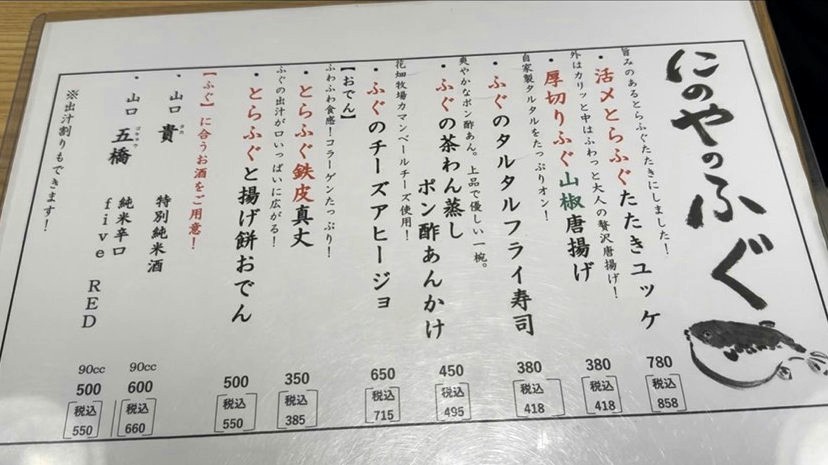 にのやのふぐ
旨みのあるとらふぐたたきにしました！
・活〆とらふぐたたきユッケ
780
税込
858
外はカリッと中はふわっと大人の贅沢唐揚げ！
・厚切りふぐ山椒唐揚げ
380
税込
418
自家製タルタルをたっぷりオン！
・ふぐのタルタルフライ寿司
380
税込
418
爽やかなポン酢あん。上品で優しい一椀。
・ふぐの茶わん蒸し
ポン酢あんかけ
450
税込
495
花畑牧場カマンベールチーズ使用！
・ふぐのチーズアヒージョ
650
税込
715
【おでん】
ふわふわ食感！コラーゲンたっぷり！
・とらふぐ鉄皮真丈
350
税込
385
ふぐの出汁が口いっぱいに広がる！
・とらふぐと揚げ餅おでん
500
税込
550
【ふぐ】に合うお酒をご用意！
・山口 貴 特別純米酒
90cc
600
税込
660
・山口 五橋 純米辛口
five RED
90cc
500
税込
550
※出汁割りもできます！